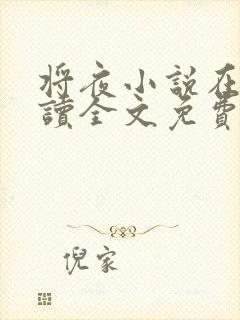 将夜小説在
讀全文免費
倪家